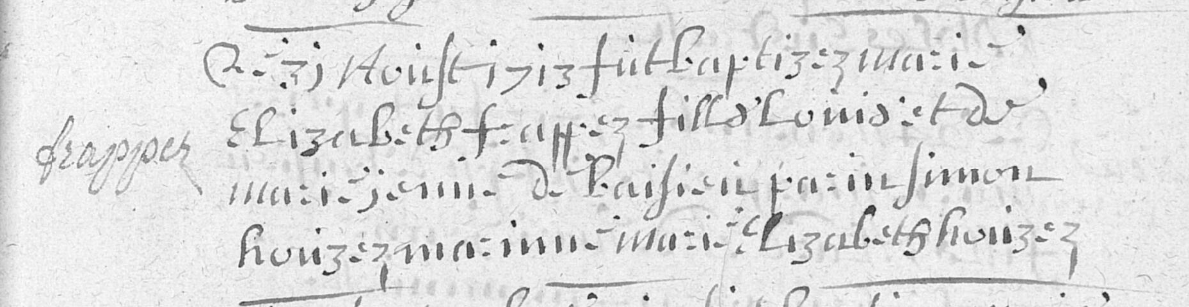 Le 21 Aoust 1712 fut baptizez marie
frappez
Elizabeth frappez fille Louis et de
marie jenne de Baisieu parin simon
houzez marinne marie Elizabeth houzez